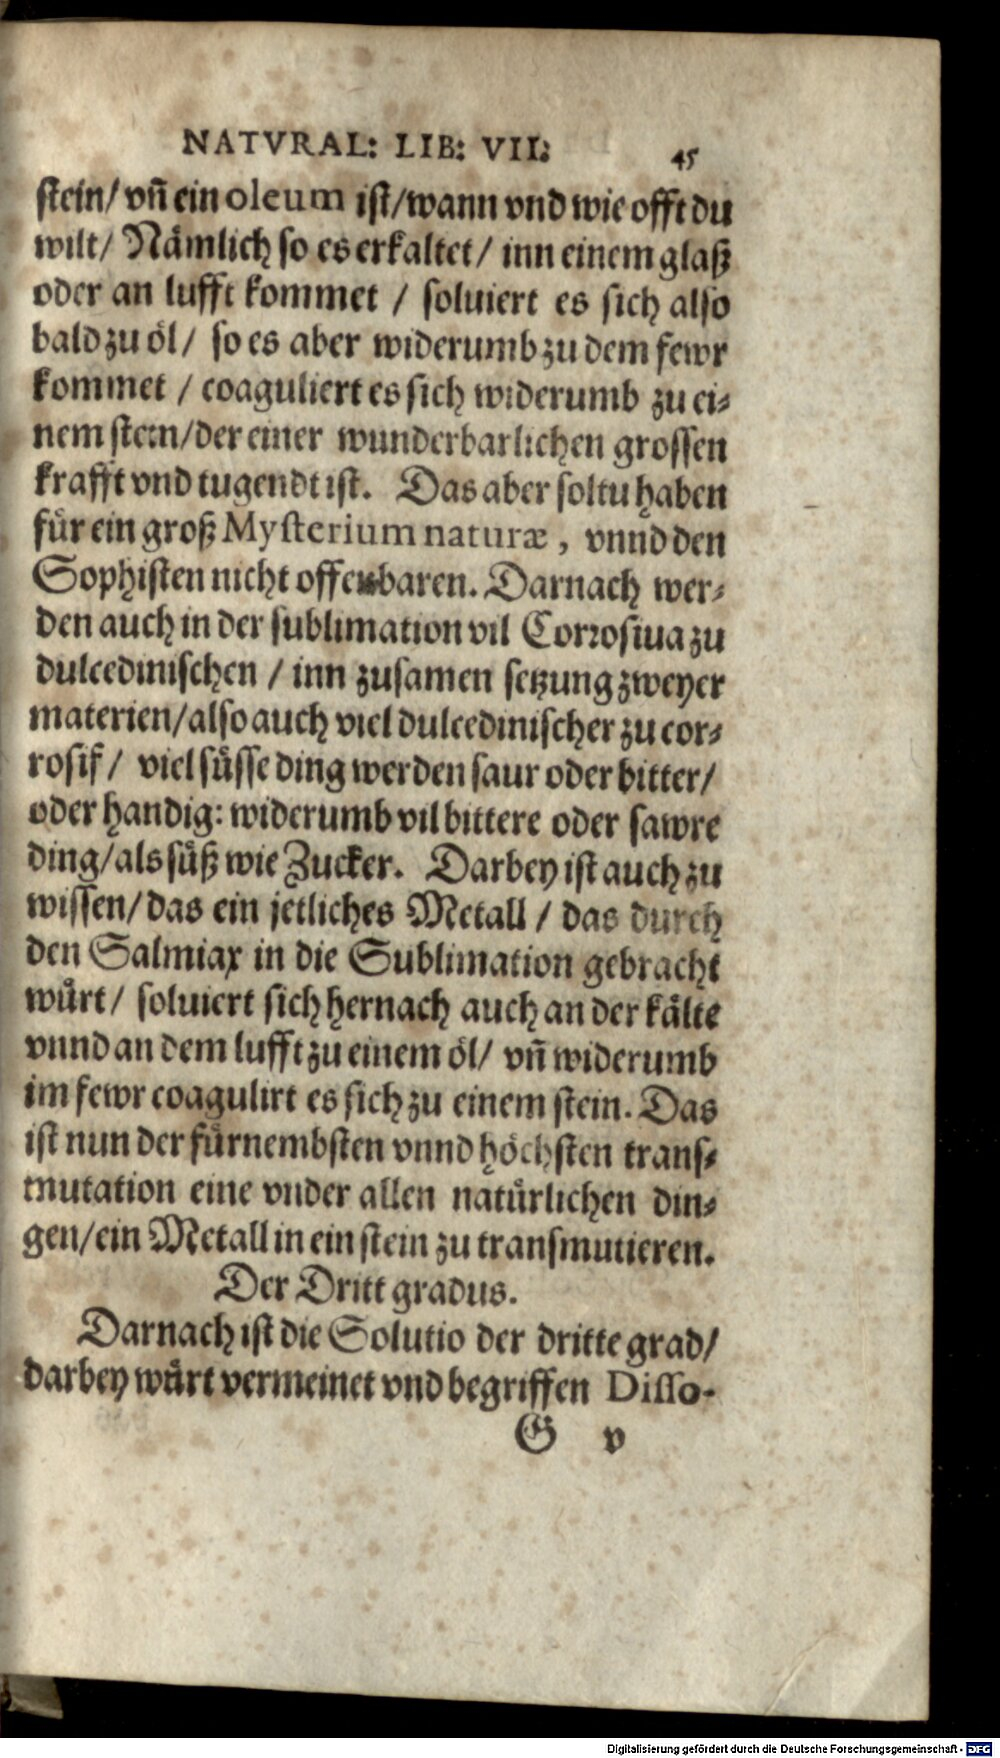 NATVRAL: LIB: VII: 45
stein/ vñ ein oleum ist/wann vnd wie offt du
wilt/ Nämlich so es erkaltet/ inn einem glaß
oder an lufft kommet / soluiert es sich also
bald zu öl/ so es aber widerumb zu dem fewr
kommet / coaguliert es sich widerumb zu ei⸗
nem stein/der einer wunderbarlichen grossen
krafft vnd tugendt ist. Das aber soltu haben
für ein groß Mysterium naturæ, vnnd den
Sophisten nicht offenbaren. Darnach wer⸗
den auch in der sublimation vil Corrosiua zu
dulcedinischen / inn zusamen setzung zweyer
materien/also auch viel dulcedinischer zu cor⸗
rosif/ viel süsse ding werden saur oder bitter/
oder handig: widerumb vil bittere oder sawre
ding/als süß wie Zucker. Darbey ist auch zu
wissen/das ein jetliches Metall / das durch
den Salmiax in die Sublimation gebracht
würt/ soluiert sich hernach auch an der kälte
vnnd an dem lufft zu einem öl/ vñ widerumb
im fewr coagulirt es sich zu einem stein. Das
ist nun der fürnembsten vnnd höchsten trans⸗
mutation eine vnder allen natürlichen din⸗
gen/ein Metall in ein stein zu transmutieren.
Der Dritt gradus.
Darnach ist die Solutio der dritte grad/
darbey würt vermeinet vnd begriffen Disso-
G v
Digitalisierung gefördert durch die Deutsche Forschungsgemeinschaft - DFG